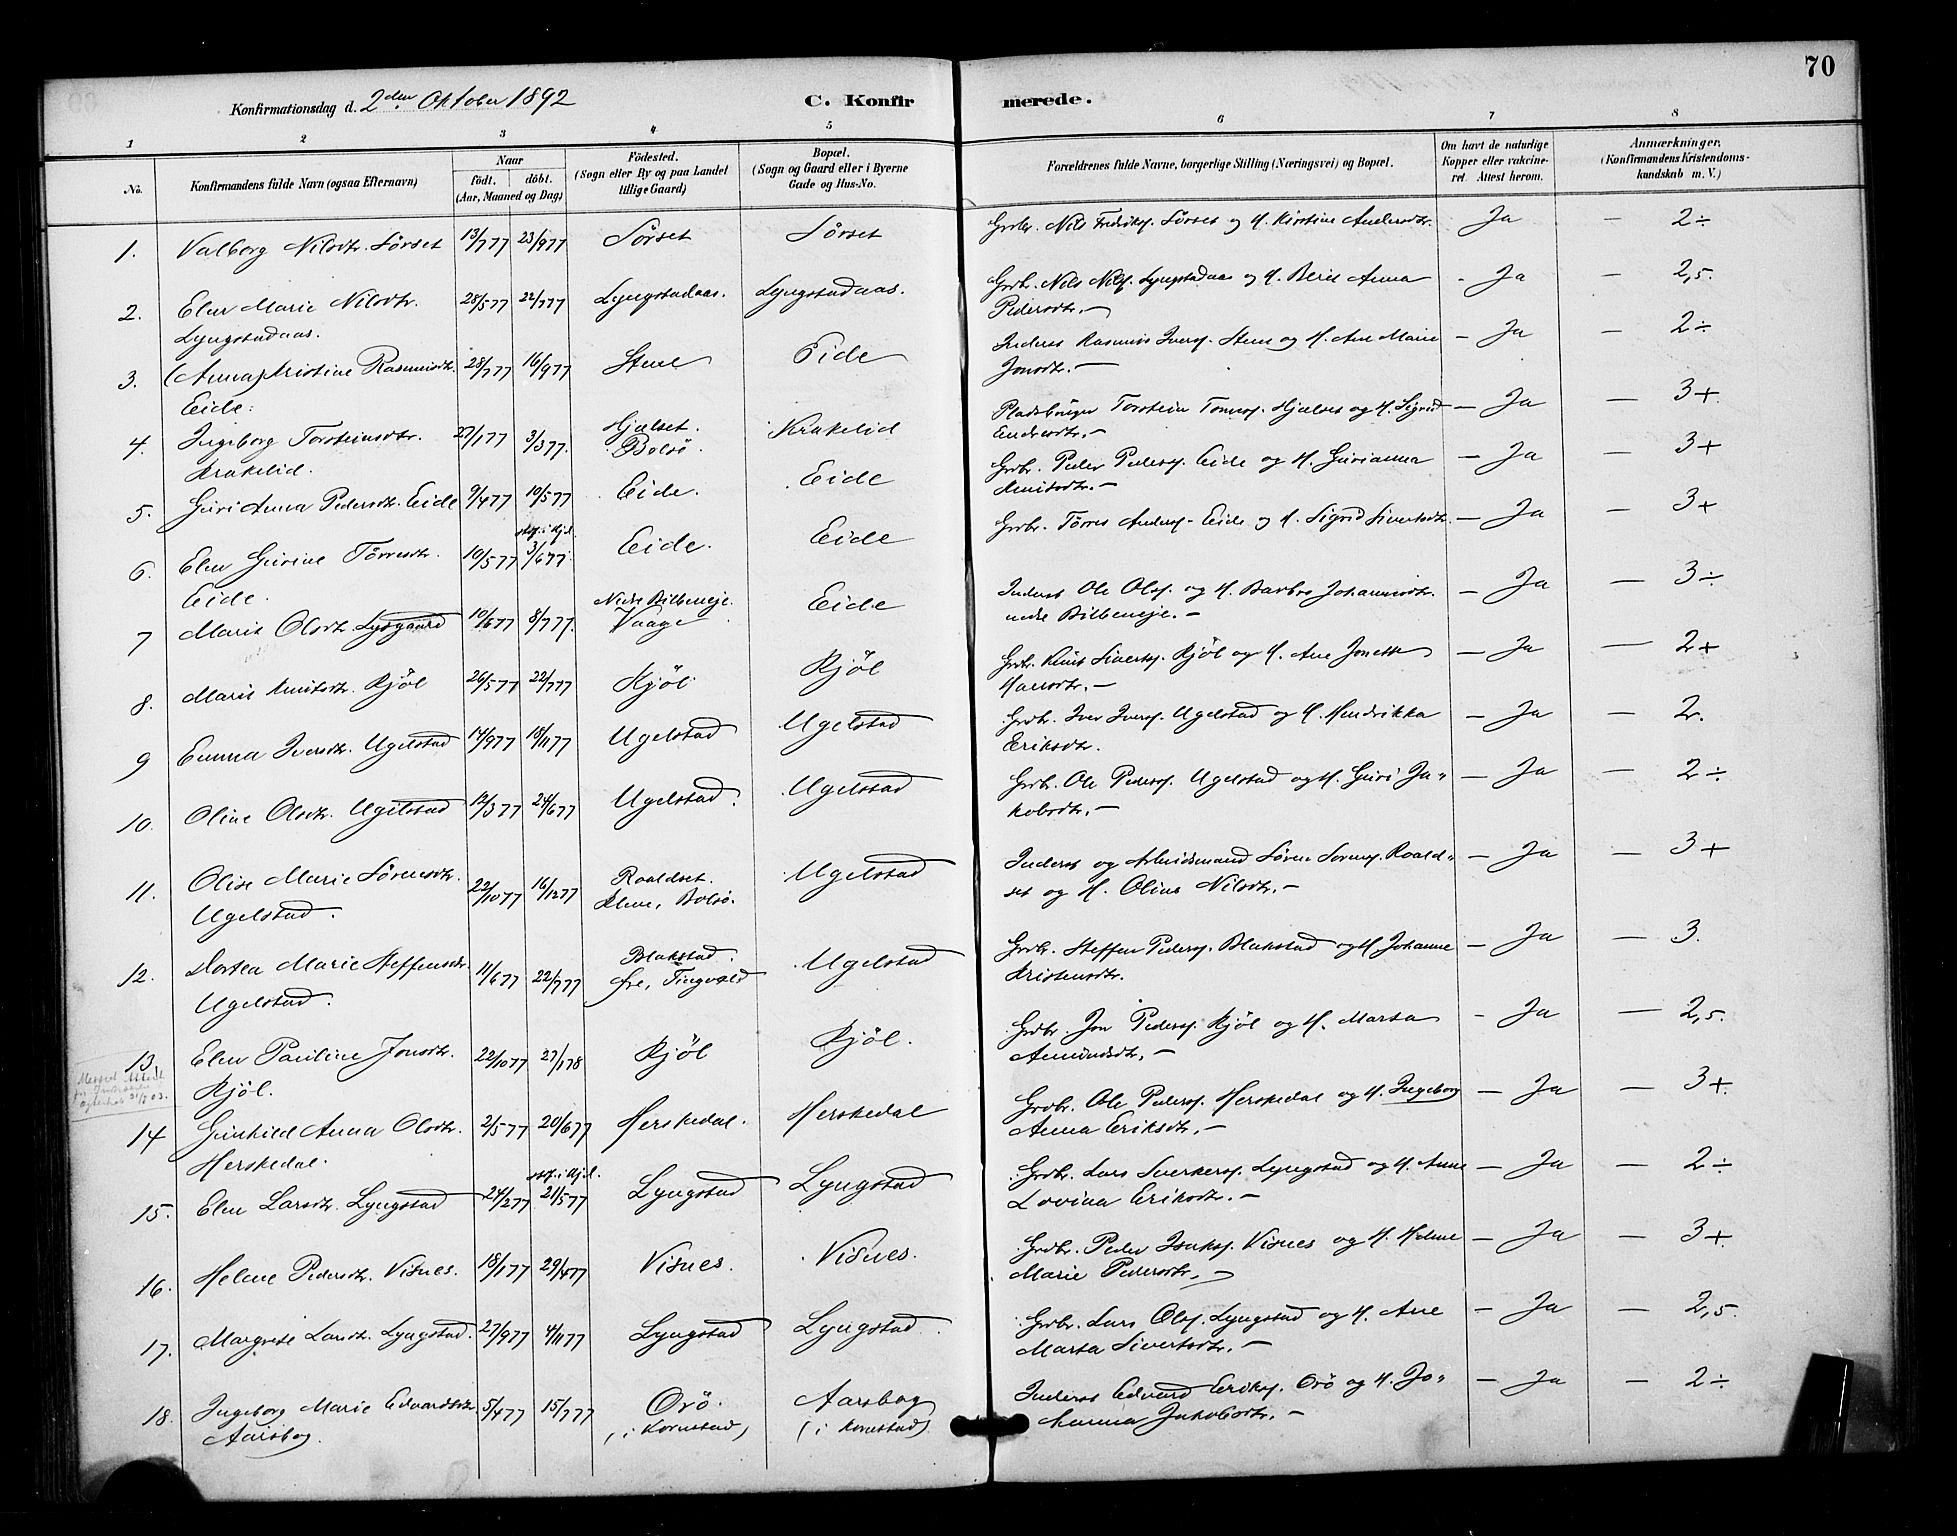 70
Konfirmationsdag d. 2den Oktober 1892 C. Konfirmerede.
1 2 3 4 5 6 7 8
No. Konfirmandens fulde Navn (ogsaa Efternavn) Naar født, døbt. (Aar, Maaned og Dag) Födested. (Sogn eller By og paa Landet tillige Gaard) Bopæl. (Sogn og Gaard eller i Byerne Gade og Hus-No. Forældrenes fulde Navne, borgerlige Stilling (Næringsvei) og Bopæl. Om havt de naturlige Kopper eller vakcineret. Attest herom. Anmærkninger, (Konfirmandens Kristendomskundskab m. V.)
1. Valborg Nilsdtr. Sørset 13/7 77 23/9 77 Sørset Sørset Grdbr. Nils Fredriks. Sørset og H. Kirstine Andersdtr. Ja — 2÷
2. Elen Marie Nilsdtr. 28/5 77 22/7 77 Lyngstadaas. Lyngstadaas. Grdb. Nils Nils. Lyngstadaas og H. Berit Anna - Ja — 2,5.
Lyngstadaas. Pedersdtr. —
3. (Anna) Kristine Rasmusdtr. 28/7 77 16/9 77 Stene Eide Inderst Rasmus Ivers. Stene og H. Ane Marie — Ja — 2÷
Eide. Jonsdtr. —
4. Ingeborg Torsteinsdtr. 27/1 77 3/3 77. Hjelset. Krakelid Pladsbruger Torstein Tores. Hjelset og H. Sigrid — Ja — 3+
Krakelid. Bolsö. Endresdtr. —
5. Guri Anna Pedersdtr. Eide 9/4 77 10/5 77 Eide. Eide Grdbr. Peder Peders. Eide og H. Gurianna — Ja — 3+
Knutsdtr. —
6. Elen Gurine Tørresdtr. 10/5 77 3/6 77. Eide. Eide Grdbr. Tørres Anders. Eide og H. Sigrid Sivertsdtr. — Ja — 3+
Eide.
7 Marit Olsdtr. Lysgaard 10/6 77 8/7 77. Nedre Bilbeneje. Vaage Eide Inderst Ole Ols. og H. Barbro Johannesdtr. — Ja — 3÷
nedre Bilbeneje. —
8. Marit Knutsdtr. Kjöl 26/5 77 22/7 77 Kjöl Kjöl Grdbr. Knut Siverts. Kjöl og H. Ane Jonetta — Ja — 2+
Hansdtr. —
9 Emma Iversdtr. Ugelstad 14/9 77 18/11 77 Ugelstad Ugelstad Grdbr. Iver Ivers. Ugelstad og H. Hendrikka — Ja — 2.
Eriksdtr.
10. Oline Olsdtr. Ugelstad 12/3 77 24/6 77 Ugelstad. Ugelstad Grdbr. Ole Peders. Ugelstad og H. Guri Ja- — Ja — 2÷
kobsdtr. —
11. Olise Marie Sørensdtr. 22/10 77 16/12 77 Roaldset. Ugelstad Inderst og Arbeidsmand Søren Sørens. Roald- — Ja — 3+
Ugelstad. Kleve, Bolsö. set og H. Olina Nilsdtr. —
12. Dortea Marie Steffensdtr. 11/6 77 22/7 77 Blakstad. Ugelstad Grdbr. Steffen Peders. Blakstad og H. Johanne — Ja — 3.
Ugelstad. Øre, Tingvold Kristensdtr.
13. Elen Pauline Jonsdtr. 22/10 77 27/1 78 Kjöl Kjöl. Grdbr. Jon Peders. Kjöl og H. Marta - Ja — 2,5.
Kjöl. Amundsdtr. —
14 Gunhild Anna Olsdtr. 2/5 77 20/6 77 Herskedal. Herskedal Grdbr. Ole Peders. Herskedal og H. Ingeborg — Ja — 3+
Herskedal. Anna Eriksdtr. —
15. Elen Larsdtr. Lyngstad 24/2 77 21/5 77 Lyngstad Lyngstad Grdbr. Lars Sverkers. Lyngstad og H. Anne — Ja — 2÷
Lovina Eriksdtr. —
16. Helene Pedersdtr. Visnes. 18/1 77 29/4 77 Visnes. Visnes. Grdbr. Peder Isaks. Visnes og H. Helene — Ja — 3+
Marie Pedersdtr. —
17. Margrete Larsdtr. Lyngstad. 27/9 77 4/11 77 Lyngstad Lyngstad Grdbr. Lars Ols. Lyngstad og H. Ane — Ja — 2,5
Marta Sivertsdtr. —
18. Ingeborg Marie Edvardsdtr. 5/4 77 15/7 77 Orö. Aarsbog Inderst Edvard Eriks. Orö og H. Jo- — Ja — 2÷
Aarsbog. (i Kornstad) (i Kornstad) hanna Jakobsdtr. —